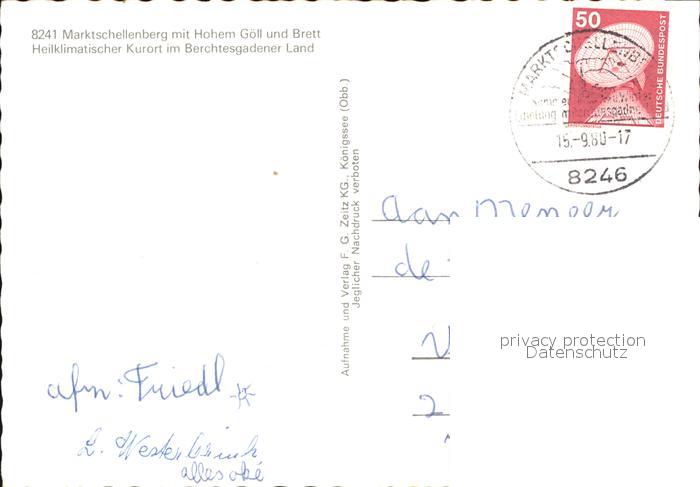 8241 Marktschellenberg mit Hohem Göll und Brett
Heilklimatischer Kurort im Berchtesgadener Land
50
DEUTSCHE BUNDESPOST
15.-9.80-17
8246
Aufnahme und Verlag F. G. Zeitz KG., Königssee (Obb.)
Jeglicher Nachdruck verboten
aan
de
privacy protection
Datenschutz
afm: Friedl
alles oké